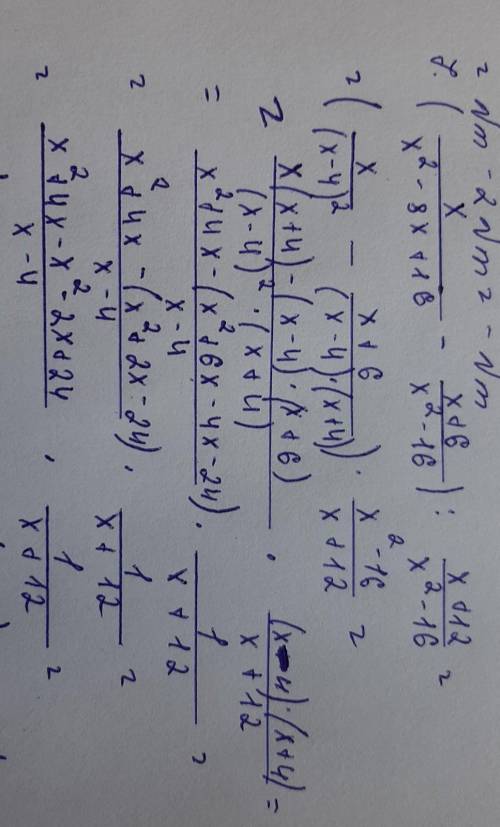 = √m - 2√m = -√m
8. (x/(x² - 8x + 16) - (x + 6)/(x² - 16)) : (x + 12)/(x² - 16) =
= (x/(x-4)² - (x + 6)/((x-4)·(x+4))) · (x² - 16)/(x + 12) =
= (x(x+4) - (x-4)·(x+6))/((x-4)²·(x+4)) · ((x-4)·(x+4))/(x + 12) =
= (x² + 4x - (x² + 6x - 4x - 24))/(x - 4) · 1/(x + 12) =
= (x² + 4x - (x² + 2x - 24))/(x - 4) · 1/(x + 12) =
= (x² + 4x - x² - 2x + 24)/(x - 4) · 1/(x + 12) =